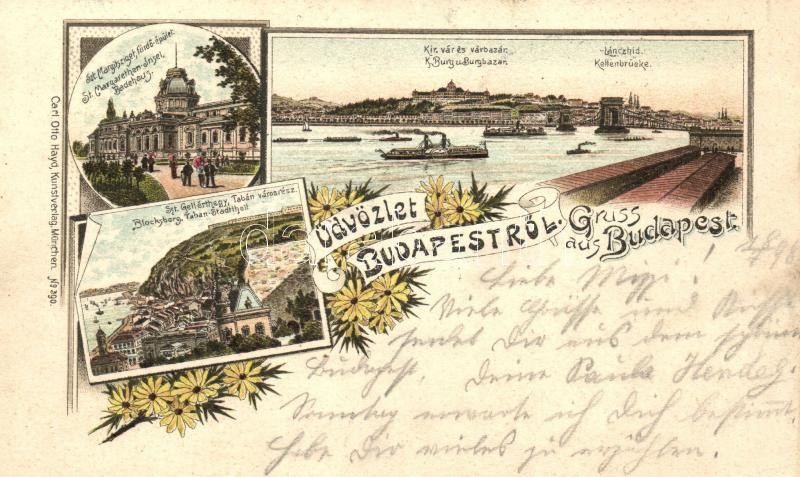 Szt. Margitsziget, fürdő-épület.
St. Margarethen-Insel,
Badehaus.
Kir. vár és várbazár.
K. Burg u. Burgbazar.
Lánczhid.
Kettenbrücke.
Szt. Gellérthegy, Tabán városrész.
Blocksberg, Taban-Stadttheil
Üdvözlet
Budapestről.
Gruss
aus Budapest.
Carl Otto Hayd, Kunstverlag, München. No 390.
Liebe Mizi!
Viele Grüsse und
sendet Dir aus dem schönen
Budapest, Deine Paula
Sonntag erwarte ich Dich bestimmt,
habe Dir vieles zu erzählen.